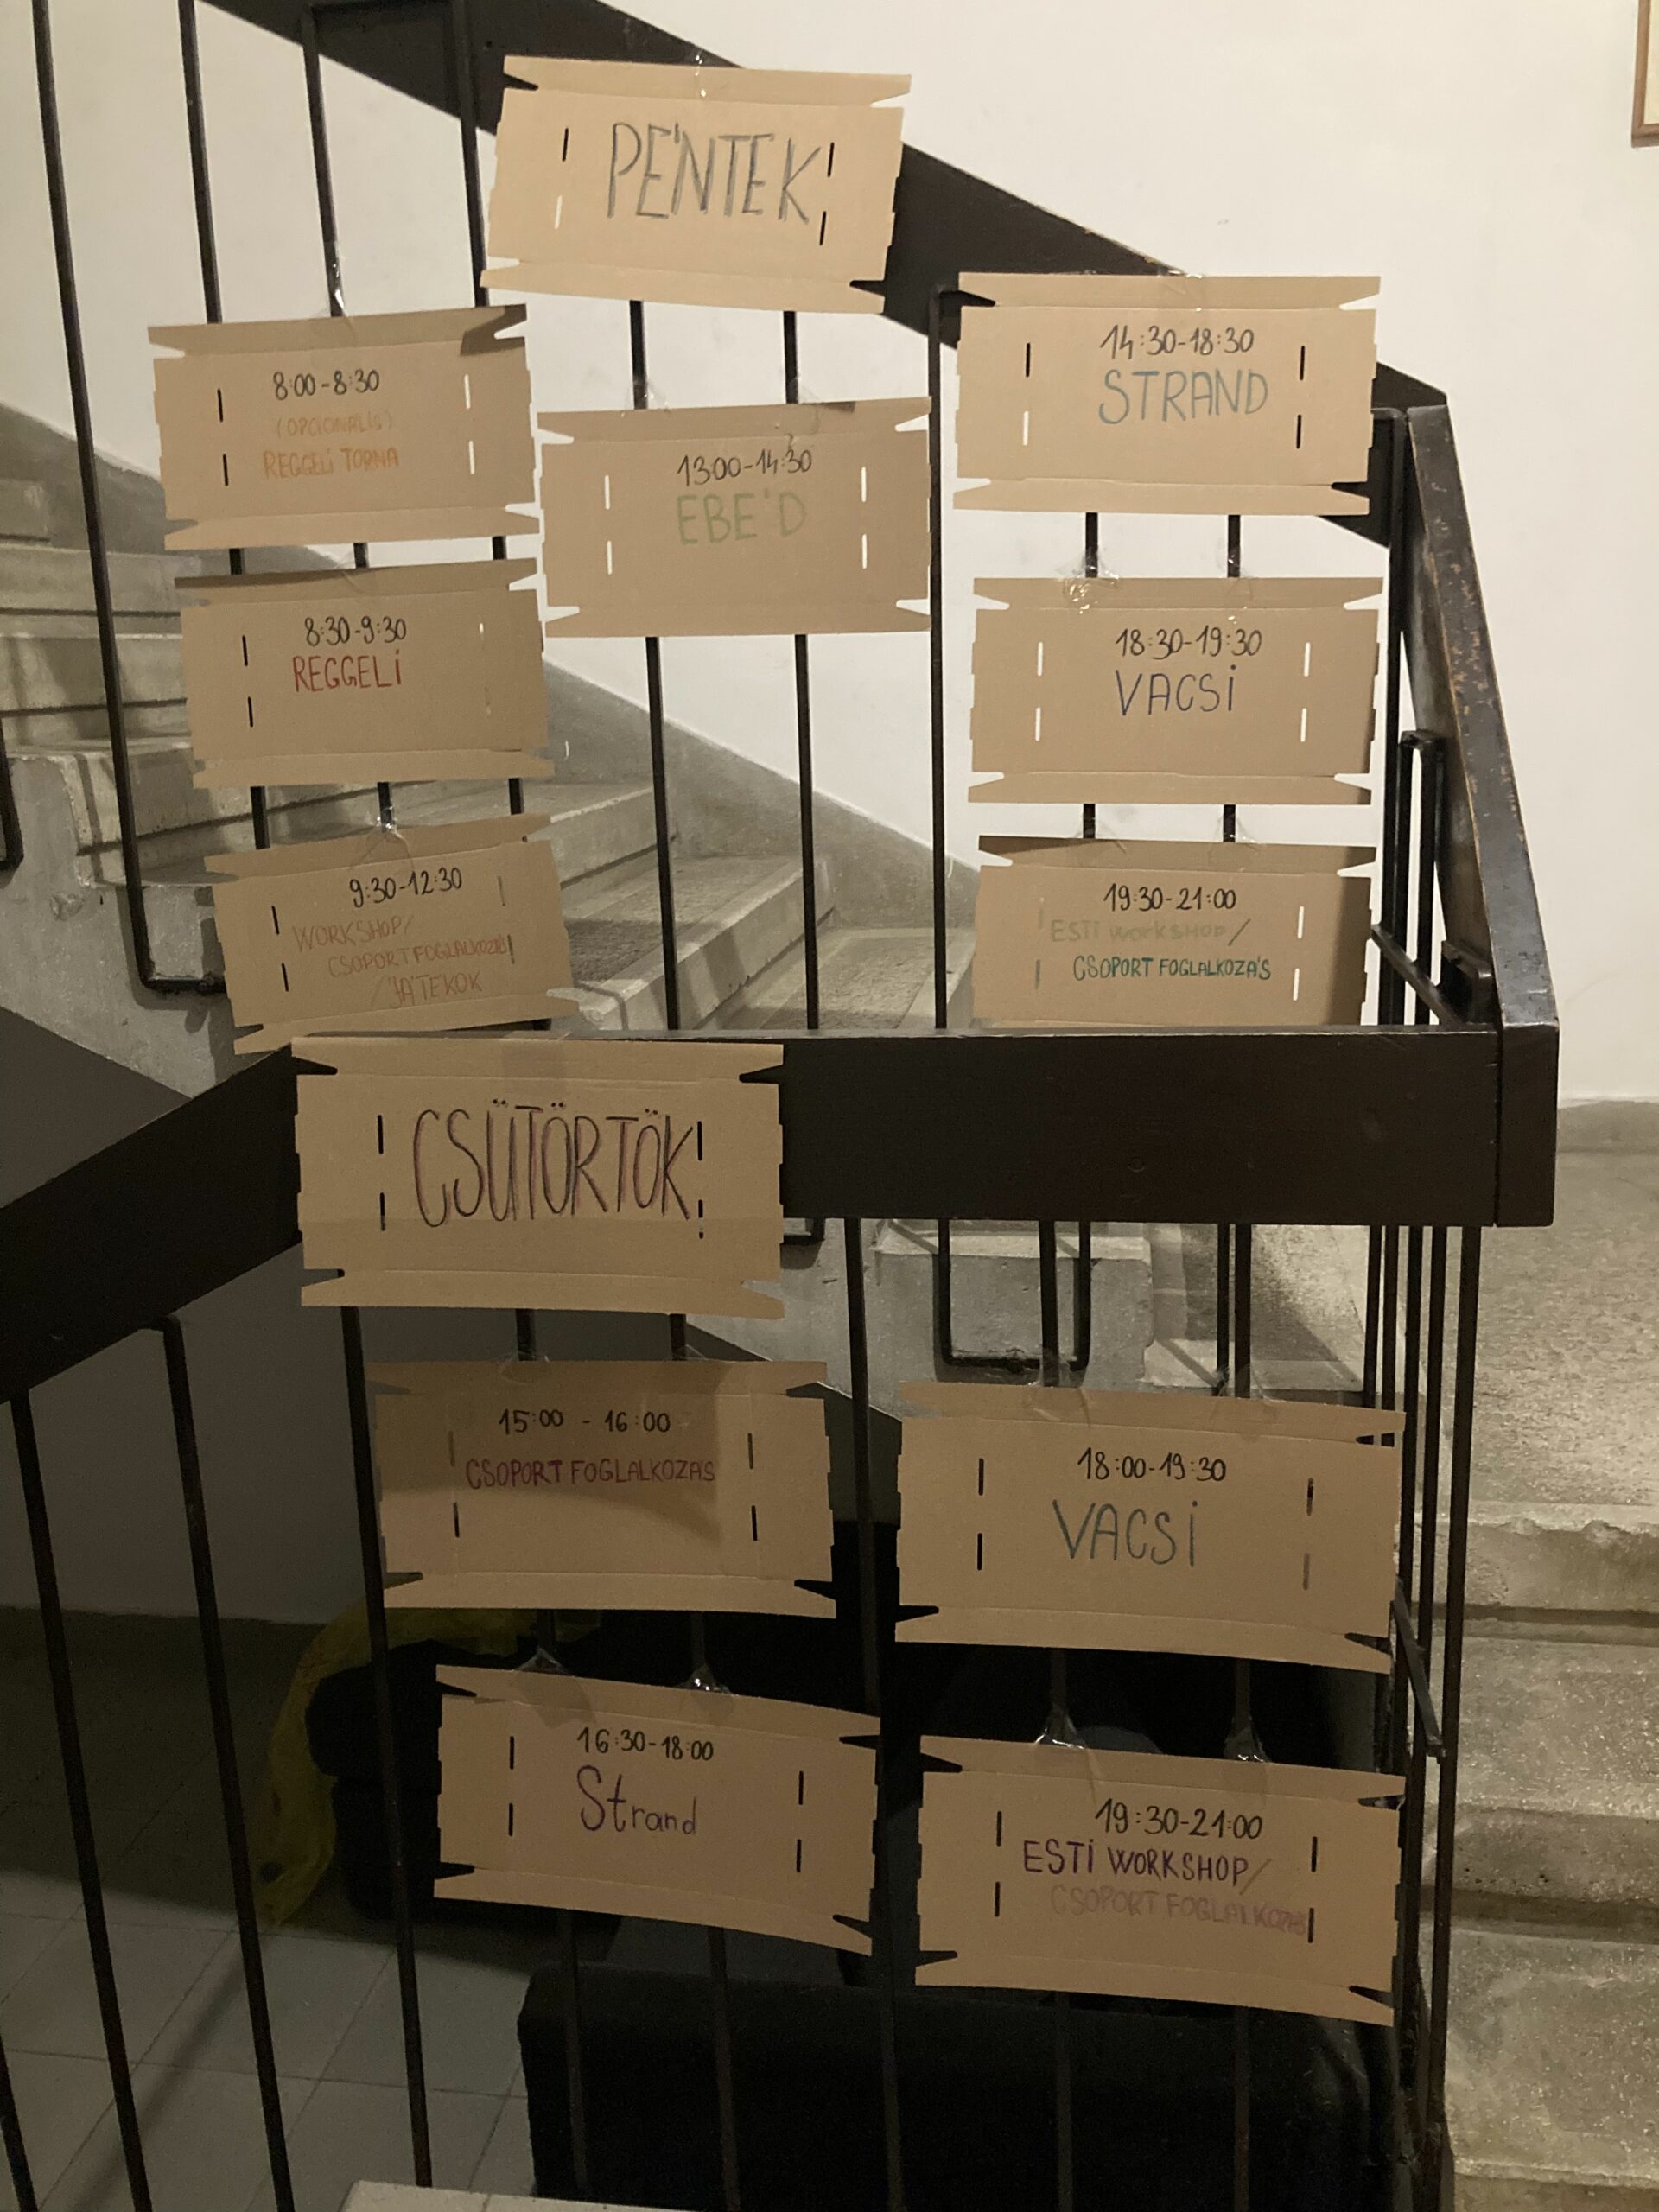 PÉNTEK
8:00-8:30
(OPCIONÁLIS)
REGGELI TORNA
8:30-9:30
REGGELI
9:30-12:30
WORKSHOP/
CSOPORT FOGLALKOZÁS
/JÁTÉKOK
13:00-14:30
EBÉD
14:30-18:30
STRAND
18:30-19:30
VACSI
19:30-21:00
ESTI WORKSHOP/
CSOPORT FOGLALKOZÁS
CSÜTÖRTÖK
15:00 - 16:00
CSOPORT FOGLALKOZÁS
16:30-18:00
Strand
18:00-19:30
VACSI
19:30-21:00
ESTI WORKSHOP/
CSOPORT FOGLALKOZÁS